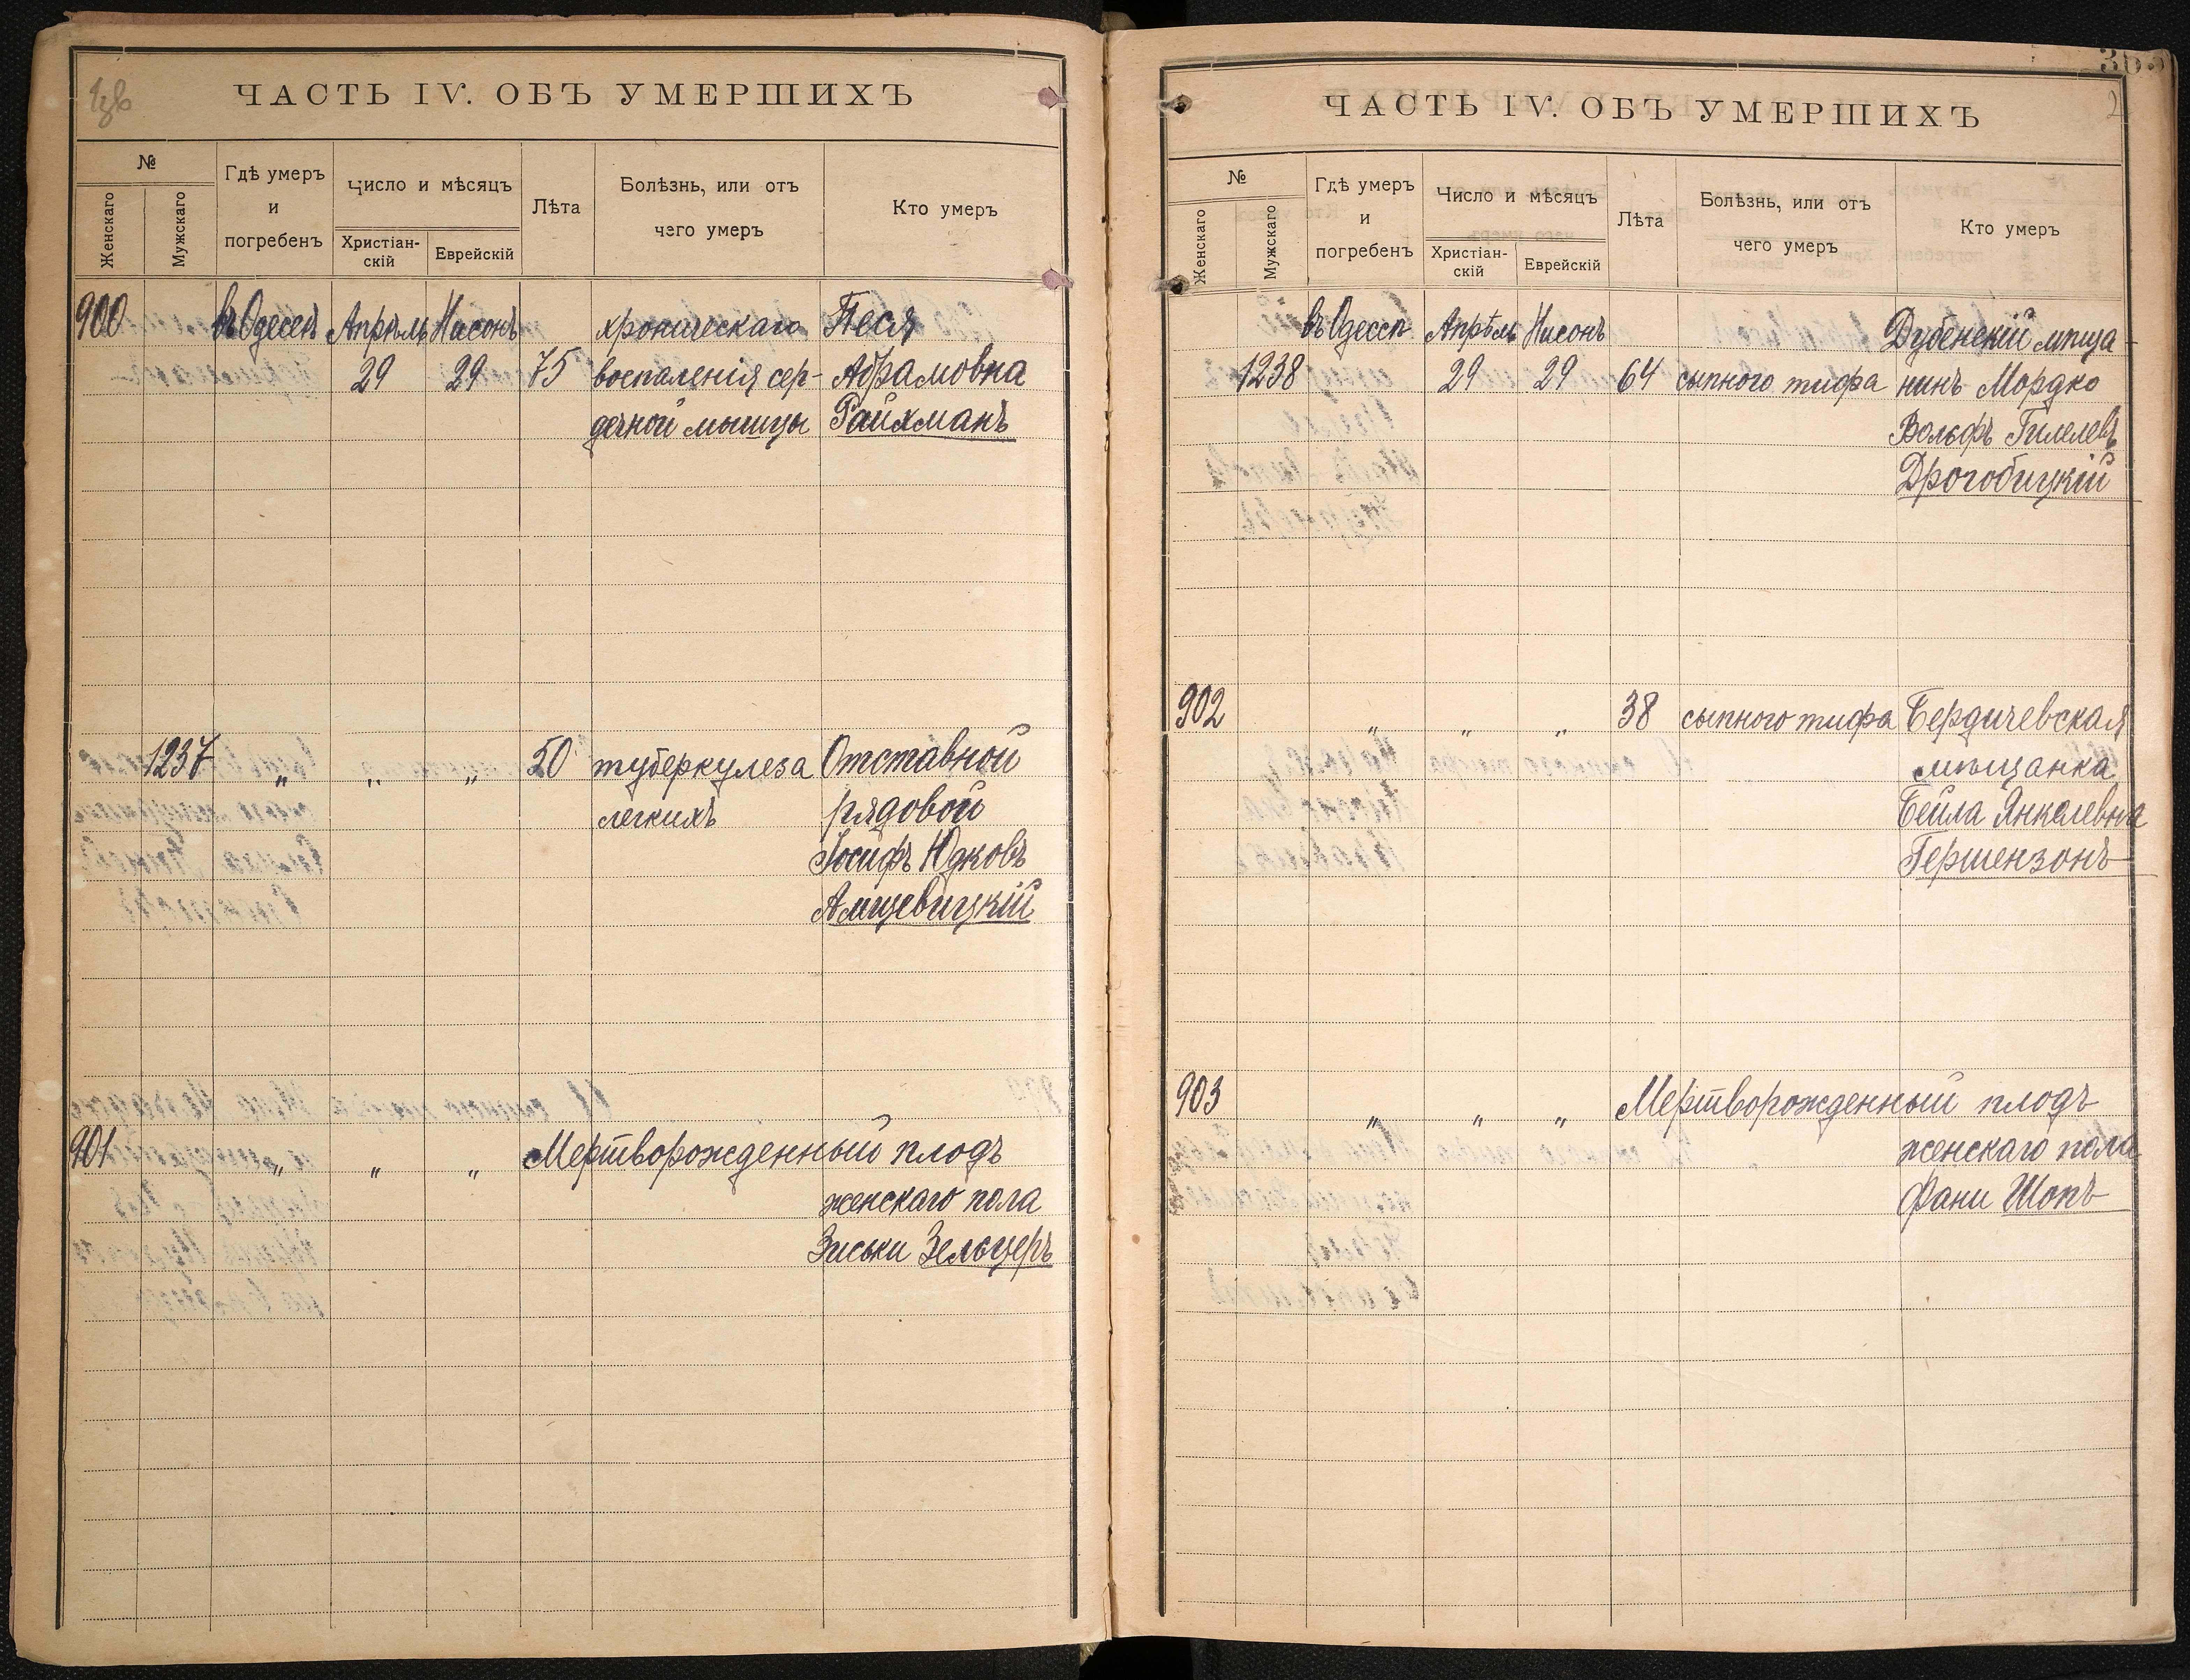 ЧАСТЬ IV. ОБЪ УМЕРШИХЪ
№
Женскаго
Мужскаго
Гдѣ умеръ
и
погребенъ
Число и мѣсяцъ
Христіан-
скій
Еврейскій
Лѣта
Болѣзнь, или отъ
чего умеръ
Кто умеръ
900 въ Одессѣ Апрѣль Нисонъ хроническаго Песя
29 29 75 воспаленія сер- Абрамовна
дечной мышцы Райхманъ
1237 " " " 50 туберкулеза Отставной
легкихъ рядовой
Іосифъ Юдковъ
901 " " " Мертворожденный плодъ
женскаго пола
Зиськи Зельцеръ
365
2
ЧАСТЬ IV. ОБЪ УМЕРШИХЪ
№
Женскаго
Мужскаго
Гдѣ умеръ
и
погребенъ
Число и мѣсяцъ
Христіан-
скій
Еврейскій
Лѣта
Болѣзнь, или отъ
чего умеръ
Кто умеръ
въ Одессѣ Апрѣль Нисонъ Дубенскій мѣща-
1238 29 29 64 сыпного тифа нинъ Мордко
Вольфъ Гилелевъ
Дрогобицкій
902 " " " 38 сыпного тифа Бердичевская
мѣщанка
Бейла Янкелевна
Гершензонъ
903 " " " Мертворожденный плодъ
женскаго пола
Фани Шопъ